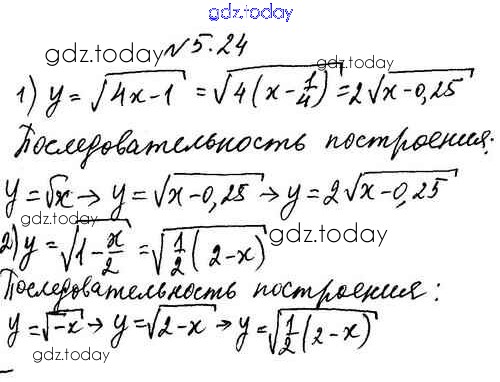 gdz.today
gdz.today №5.24
1) y = √(4x-1) = √(4(x - 1/4)) = 2√(x-0,25)
gdz.today
Последовательность построения:
y = √x → y = √(x-0,25) → y = 2√(x-0,25)
gdz.today
2) y = √(1 - x/2) = √(1/2(2-x)) gdz.today
Последовательность построения:
y = √(-x) → y = √(2-x) → y = √(1/2(2-x))
gdz.today